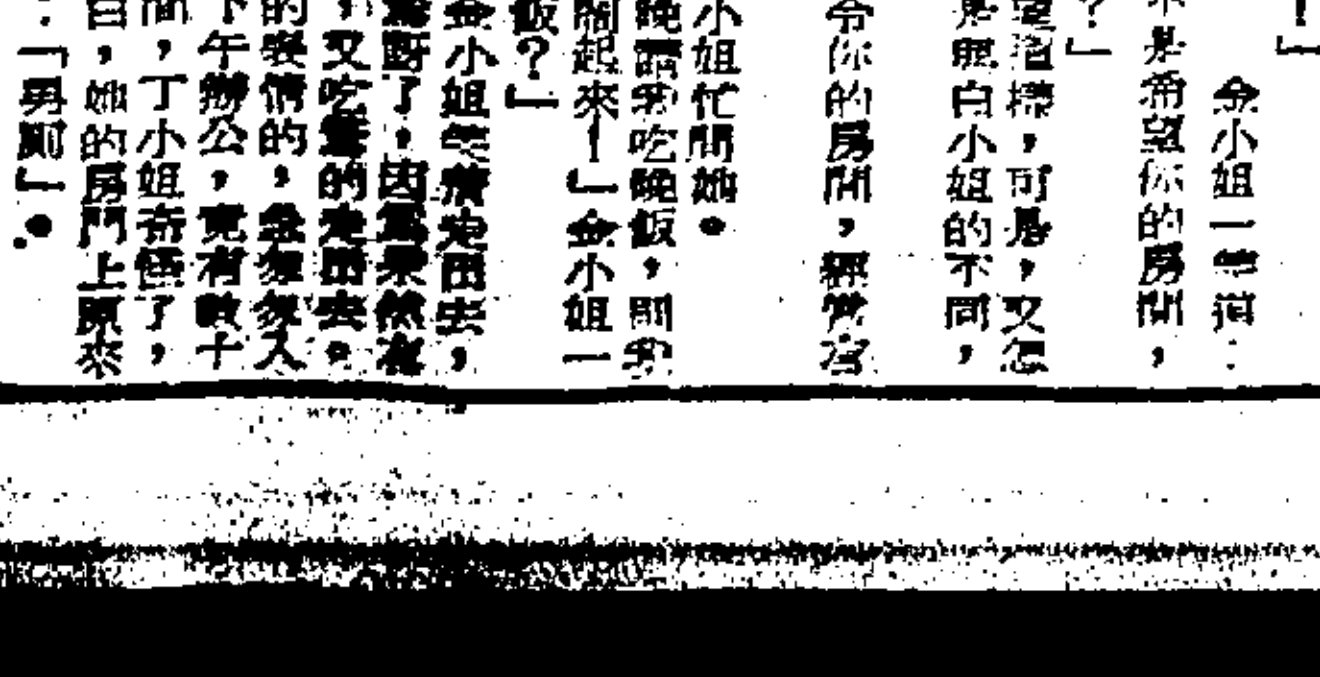 ！」
金小姐一笑道：
不是希望你的房間，
？」
望這樣，可是，又怎
是跟白小姐的不同，
令你的房間，經常客
小姐忙問她。
晚請我吃晚飯，則我
鬧起來！」金小姐一
飯？」
金小姐笑着走出去，
了，因爲果然有
，又吃驚的走出去。
的表情的，
下午辦公，竟有數十
間，丁小姐奇怪了，
白，她的房門上原來
：「男厠」。